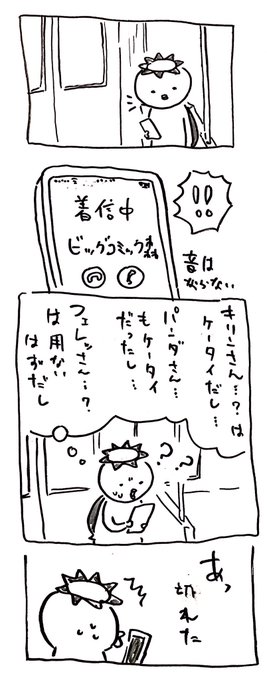 !!
着信中
ビッグコミック森
音は
ならない
キリンさん…?は
ケータイだし…
パンダさん…
もケータイ
だったし…
フェレッさん…?
は用ない
はずだし
??
あっ
切れた